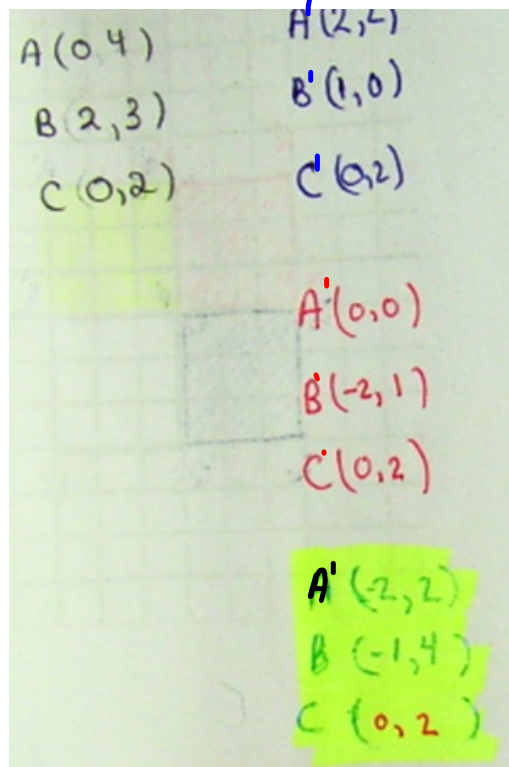 A(0 4)
B(2,3)
C(0,2)
A'(2,2)
B'(1,0)
C'(0,2)
A'(0,0)
B'(-2,1)
C'(0,2)
A'(-2,2)
B(-1,4)
C(0,2)